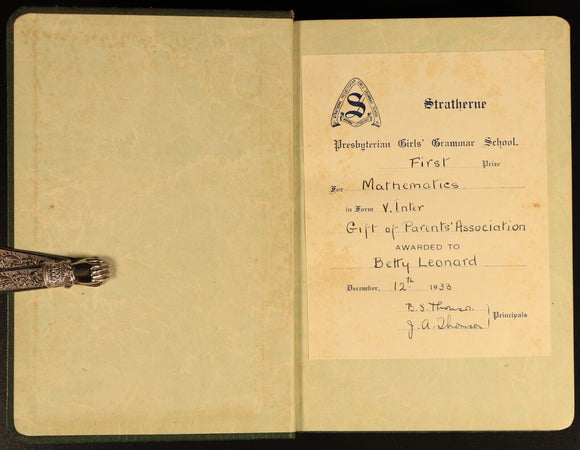 S
Stratherne
Presbyterian Girls' Grammar School.
First Prize
For Mathematics
in Form V. Inter
Gift of Parents' Association
AWARDED TO
Betty Leonard
December, 12th 1933
B. S. Thomson
J. A. Thomson
Principals